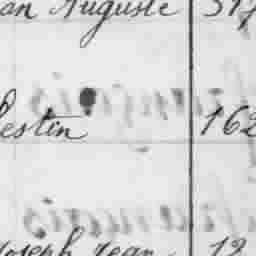 an Auguste 317
estin 162
Joseph Jean 12